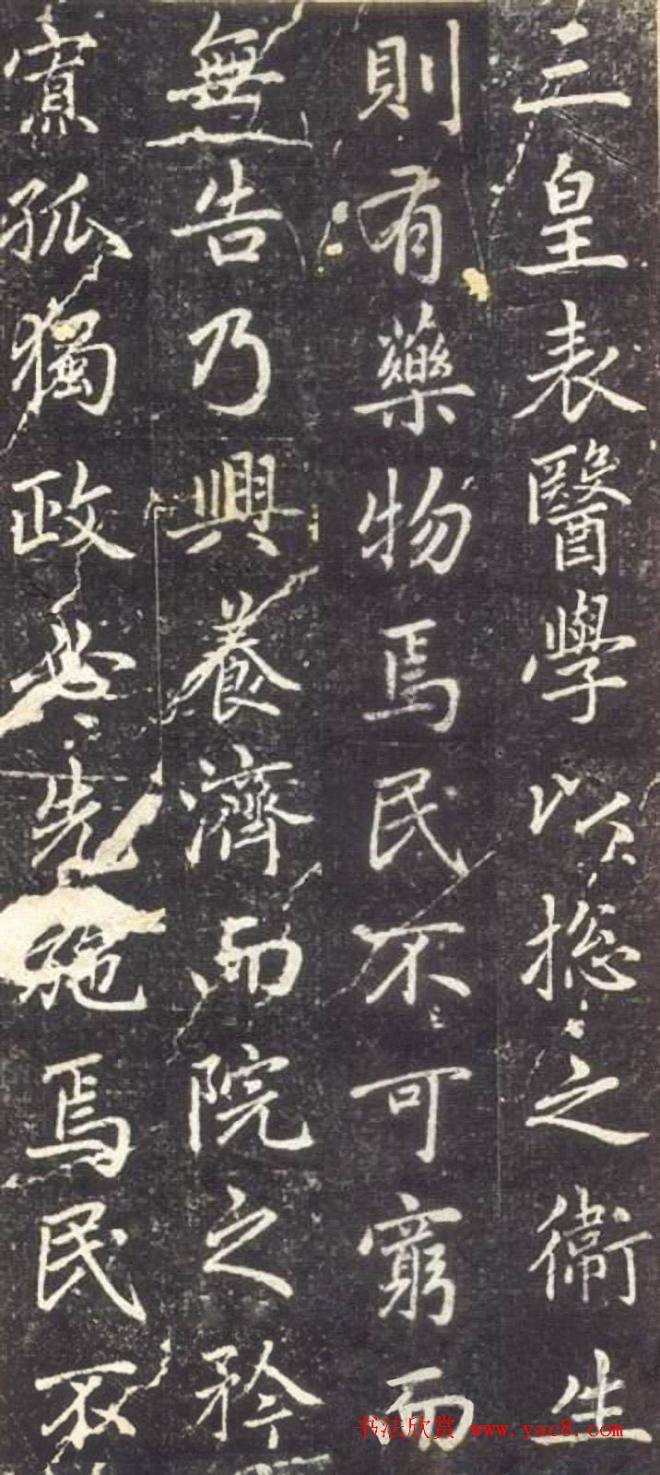 三皇表醫學以摠之衛生
則有藥物焉民不可窮而
無告乃興養濟而院之矜
寡孤獨政必先施焉民不
书法欣赏 www.yac8.com